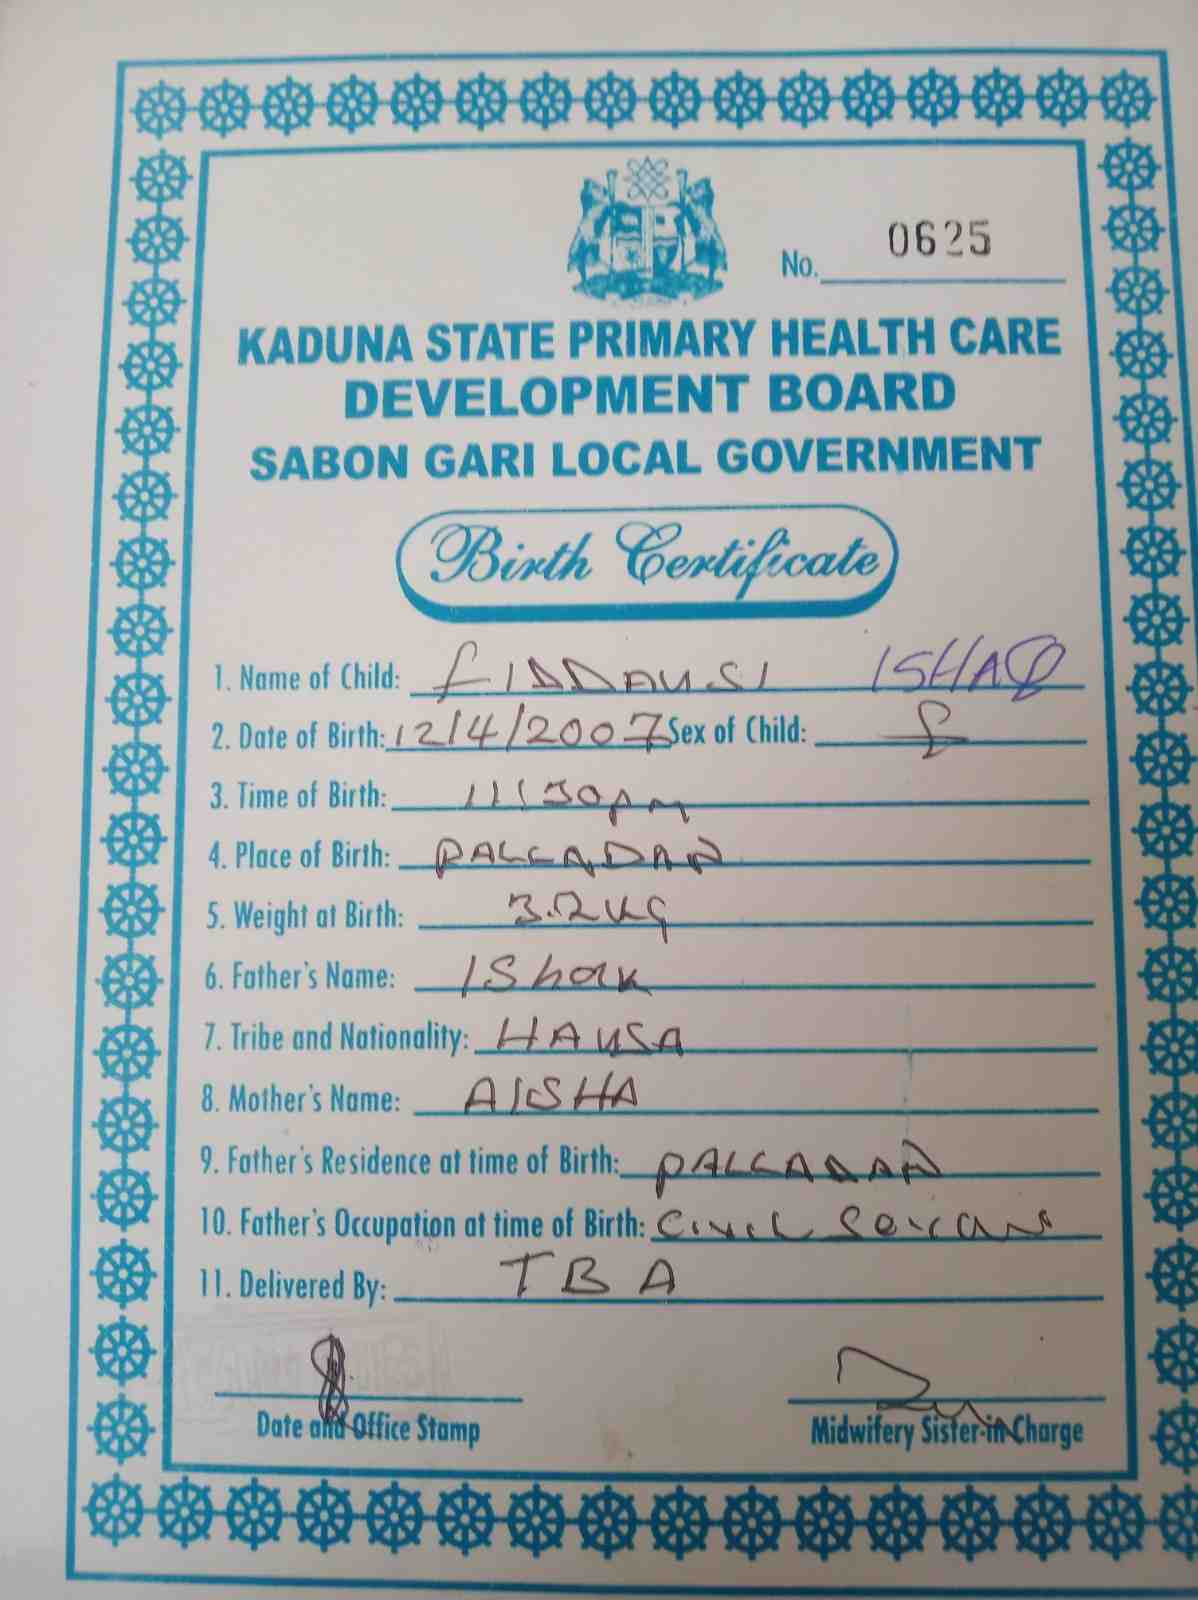 No. 0625
KADUNA STATE PRIMARY HEALTH CARE
DEVELOPMENT BOARD
SABON GARI LOCAL GOVERNMENT
Birth Certificate
1. Name of Child: FIDDAUSI ISHAQ
2. Date of Birth: 12/4/2007 Sex of Child: F
3. Time of Birth: 11:30pm
4. Place of Birth: PALLADAN
5. Weight at Birth: 3.2kg
6. Father's Name: IShak
7. Tribe and Nationality: HAUSA
8. Mother's Name: AISHA
9. Father's Residence at time of Birth: PALLADAN
10. Father's Occupation at time of Birth: Civil
11. Delivered By: TBA
Date and Office Stamp Midwifery Sister-in Charge